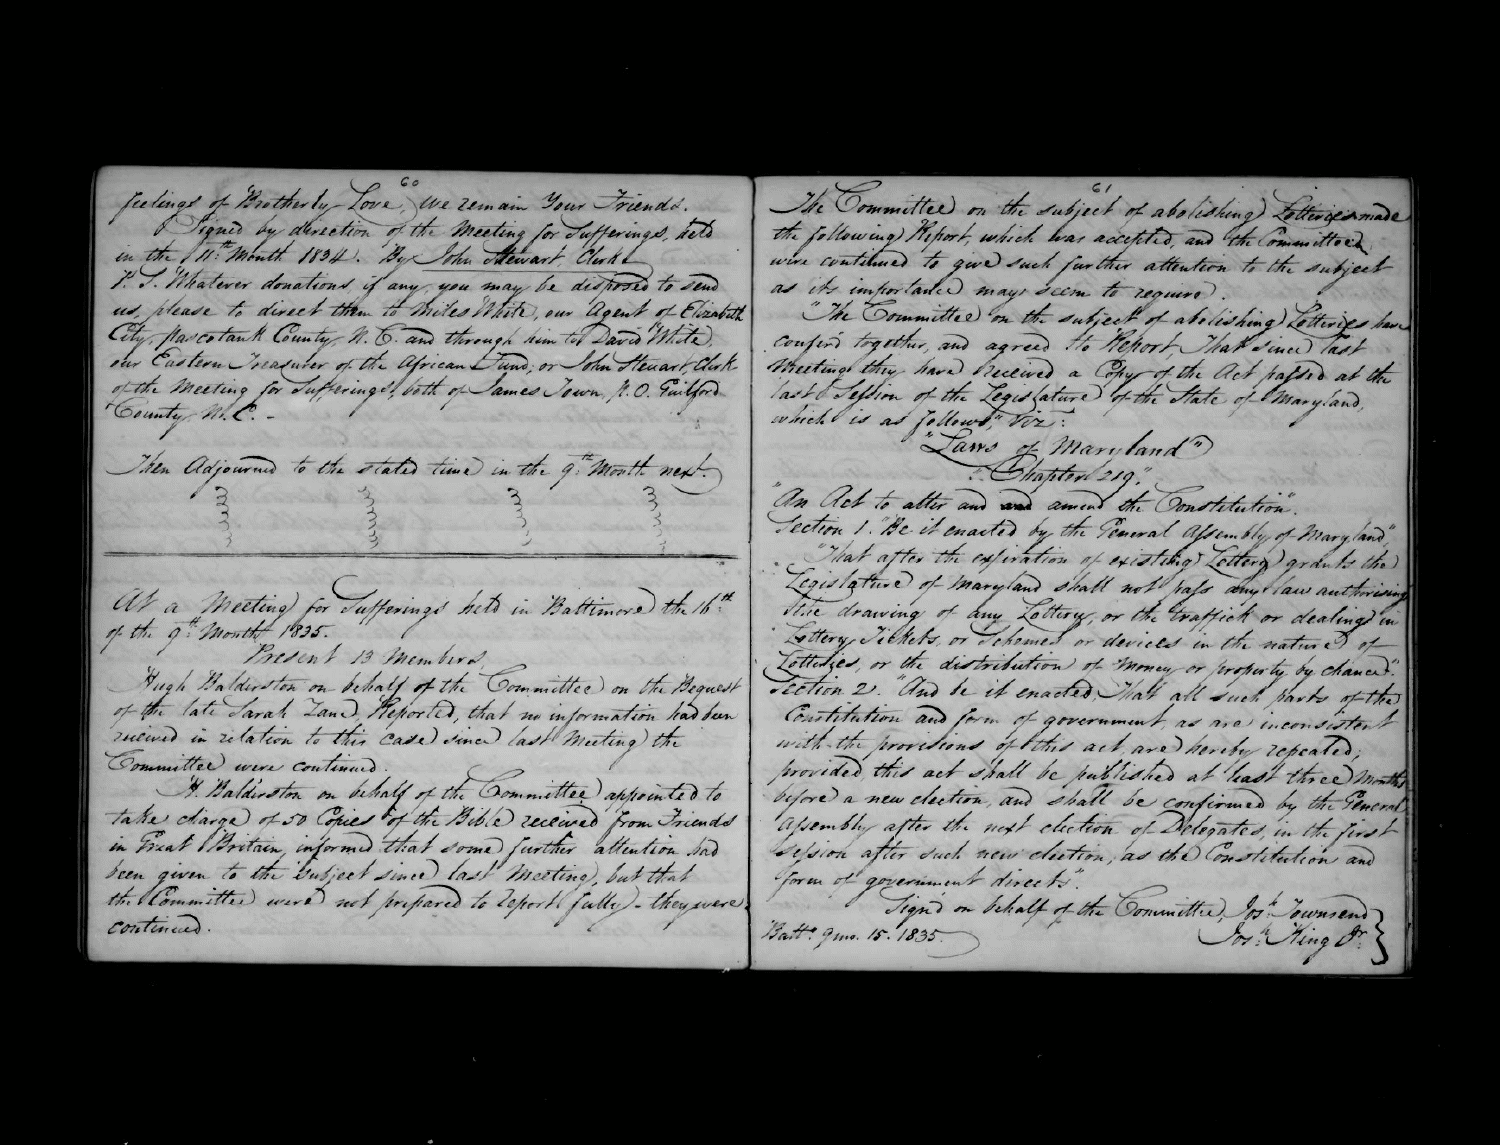 60
feelings of Brotherly Love, We remain Your Friends.
Signed by direction of the Meeting for Sufferings, held
in the 11th Month 1834. By John Stewart, Clerk
P. S. Whatever donations, if any, you may be disposed to send
us, please to direct them to Miles White, our Agent of Elizabeth
City, Pascotank County N. C. and through him to David White,
our Eastern Treasurer of the African Fund, or John Stewart, Clerk
of the Meeting for Sufferings, both of James Town, P. O. Guilford
County N. C. -
Then Adjourned to the stated time in the 9th Month next.
At a Meeting for Sufferings held in Baltimore the 16th
of the 9th Month 1835.
Present 13 Members.
Hugh Balderston on behalf of the Committee on the Bequest
of the late Sarah Zane, Reported, that no information had been
received in relation to this case since last Meeting the
Committee were continued.
H. Balderston on behalf of the Committee appointed to
take charge of 50 Copies of the Bible received from Friends
in Great Britain, informed that some further attention had
been given to the subject since last Meeting, but that
the Committee were not prepared to report fully - they were
continued.
61
The Committee on the subject of abolishing Lotteries made
the following Report, which was accepted, and the Committee
were continued to give such further attention to the subject
as its importance may seem to require.
"The Committee on the subject of abolishing Lotteries have
confer'd together, and agreed to Report, That since last
Meeting they have received a Copy of the Act passed at the
last Session of the Legislature of the State of Maryland,
which is as follows," viz:
"Laws of Maryland"
"Chapter 219."
"An Act to alter and and amend the Constitution".
Section 1. "Be it enacted by the General Assembly of Maryland,"
"That after the expiration of existing Lottery grants the
Legislature of Maryland shall not pass any law authorising
the drawing of any Lottery, or the traffick or dealing in
Lottery Tickets, or Schemes or devices in the nature of
Lotteries, or the distribution of money or property by chance."
Section 2. "And be it enacted, That all such parts of the
Constitution and form of government, as are inconsistent
with the provisions of this act, are hereby repealed;
provided this act shall be published at least three Months
before a new election, and shall be confirmed by the General
Assembly after the next election of Delegates, in the first
session after such new election, as the Constitution and
form of government directs".
Sign'd on behalf of the Committee, Josh Townsend
Balto. 9mo. 15. 1835. Josh King Jr.